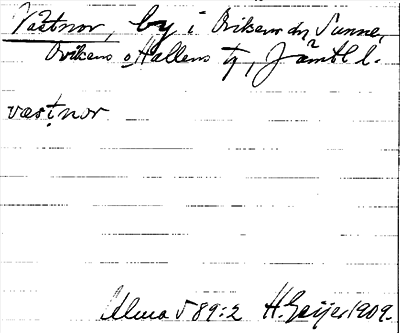 Västnor, by i Ovikens sn, Sunne,
Ovikens o Hallens tg, Jämtl l.
væstnor
Ulma 589:2 H. Geijer 1909.